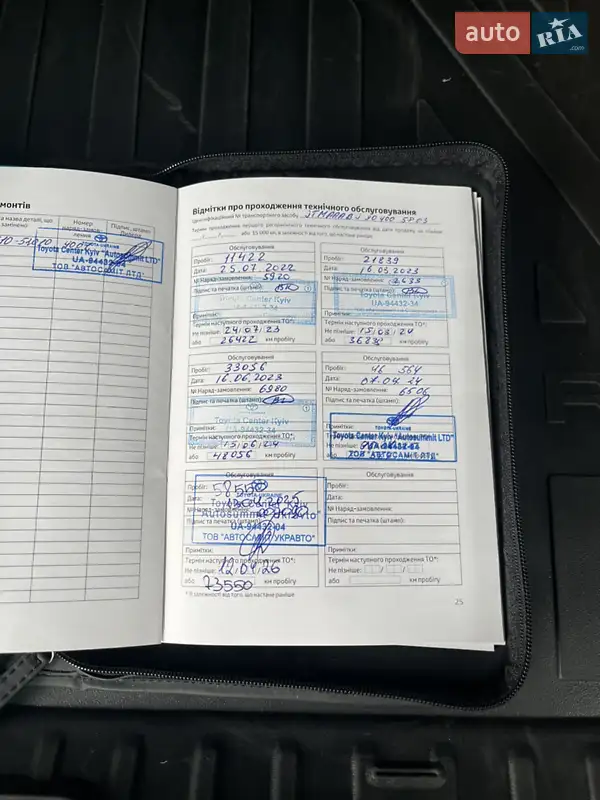 auto RIA .com
монтів
Відмітки про проходження технічного обслуговування
Ідентифікаційний № транспортного засобу
а назва деталі, що
Номер
Підпис, штамп
Toyota Center Kyiv "Autosummit LTD"
UA-94432-04
ТОВ "АВТОСАМІТ ЛТД"
Обслуговування
Пробіг: 11422
Дата: 25.07.2022
№ Наряд-замовлення: 5920
Підпис та печатка (штамп):
Toyota Center Kyiv
UA-94432-34
Примітки:
Термін наступного проходження ТО*:
Не пізніше: 24/07/23
або 26422 км пробігу
Обслуговування
Пробіг: 21839
Дата: 16.03.2023
№ Наряд-замовлення: 2633
Підпис та печатка (штамп):
Toyota Center Kyiv
UA-94432-34
Примітки:
Термін наступного проходження ТО*:
Не пізніше: 15/03/24
або 36839 км пробігу
Обслуговування
Пробіг: 33056
Дата: 16.06.2023
№ Наряд-замовлення: 6980
Підпис та печатка (штамп):
Toyota Center Kyiv
UA-94432-34
Примітки:
Термін наступного проходження ТО*:
Не пізніше: 15/06/24
або 48056 км пробігу
Обслуговування
Пробіг: 46 564
Дата: 07.04.24
№ Наряд-замовлення: 6506
Підпис та печатка (штамп):
TOYOTA UKRAINE
Toyota Center Kyiv "Autosummit LTD"
ТОВ "АВТОСАМІТ ЛТД"
або км пробігу
Пробіг: 58550
Дата:
№ Наряд-замовлення:
Підпис та печатка (штамп):
UA-94432-04
ТОВ "АВТОСАМІТ УКРАВТО"
Примітки:
Термін наступного проходження ТО*:
Не пізніше: 12/01/26
або 73550 км пробігу
Обслуговування
Пробіг:
Дата:
№ Наряд-замовлення:
Підпис та печатка (штамп):
Примітки:
Термін наступного проходження ТО*:
Не пізніше: / /
або км пробігу
* В залежності від того, що настане раніше
25